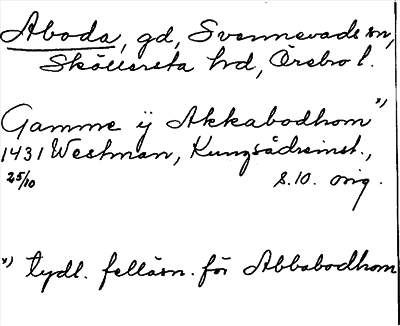 Aboda, gd, Svennevads sn,
Sköllersta hd, Örebro l.
Gamme ij Akkabodhom x)
1431 Westman, Kungsådreinst.,
25/10 s. 10. orig.
x) tydl. felläsn. för Abbabodhom